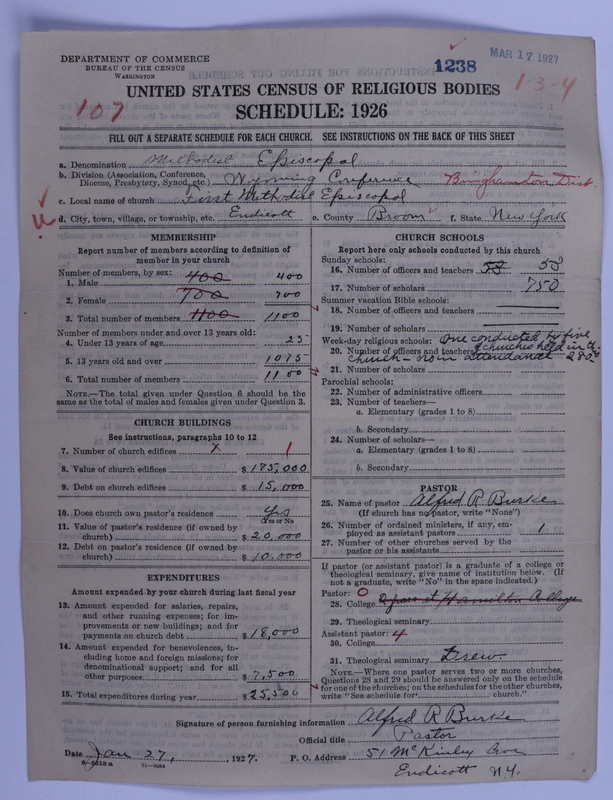 DEPARTMENT OF COMMERCE
BUREAU OF THE CENSUS
WASHINGTON
1238
MAR 17 1927
1-3-4
107
UNITED STATES CENSUS OF RELIGIOUS BODIES
SCHEDULE: 1926
FILL OUT A SEPARATE SCHEDULE FOR EACH CHURCH. SEE INSTRUCTIONS ON THE BACK OF THIS SHEET
a. Denomination Methodist Episcopal
b. Division (Association, Conference, Diocese, Presbytery, Synod, etc.) Wyoming Conference Binghamton Dist.
c. Local name of church First Methodist Episcopal
d. City, town, village, or township, etc. Endicott e. County Broom f. State New York
MEMBERSHIP
Report number of members according to definition of
member in your church
Number of members, by sex:
1. Male 400 400
2. Female 700 700
3. Total number of members 1100 1100
Number of members under and over 13 years old:
4. Under 13 years of age 25
5. 13 years old and over 1075
6. Total number of members 1100
NOTE.—The total given under Question 6 should be
same as the total of males and females given under Question 3.
CHURCH BUILDINGS
See instructions, paragraphs 10 to 12
7. Number of church edifices x 1
8. Value of church edifices $ 175,000
9. Debt on church edifices $ 15,000
10. Does church own pastor's residence? Yes
(Yes or No)
11. Value of pastor's residence (if owned by
church) $ 20,000
12. Debt on pastor's residence (if owned by
church) $ 10,000
EXPENDITURES
Amount expended by your church during last fiscal year
13. Amount expended for salaries, repairs,
and other running expenses; for im-
provements or new buildings; and for
payments on church debt $ 18,000
14. Amount expended for benevolences, in-
cluding home and foreign missions; for
denominational support; and for all
other purposes $ 7,500
15. Total expenditures during year $ 25,500
CHURCH SCHOOLS
Report here only schools conducted by this church
Sunday schools:
16. Number of officers and teachers 53 53
17. Number of scholars 750
Summer vacation Bible schools:
18. Number of officers and teachers
19. Number of scholars
Week-day religious schools: One conducted by five
20. Number of officers and teachers churches held in
church - now in attendance 280
21. Number of scholars
Parochial schools:
22. Number of administrative officers
23. Number of teachers—
a. Elementary (grades 1 to 8)
b. Secondary
24. Number of scholars—
a. Elementary (grades 1 to 8)
b. Secondary
PASTOR
25. Name of pastor Alfred R Burke
(If church has no pastor, write "None")
26. Number of ordained ministers, if any, em-
ployed as assistant pastors 1
27. Number of other churches served by the
pastor or his assistants
If pastor (or assistant pastor) is a graduate of a college or
theological seminary, give name of institution below. (If
not a graduate, write "No" in the space indicated.)
Pastor: 0
28. College 2 years at Hamilton College
29. Theological seminary
Assistant pastor: 4
30. College
31. Theological seminary Drew
NOTE.—Where one pastor serves two or more churches,
Questions 28 and 29 should be answered only on the schedule
for one of the churches; on the schedules for the other churches,
write "See schedule for church."
Signature of person furnishing information Alfred R Burke
Official title Pastor
Date Jan 27, 1927. P. O. Address 51 McKinley Ave
8-5518 a 11-9364
Endicott N.Y.